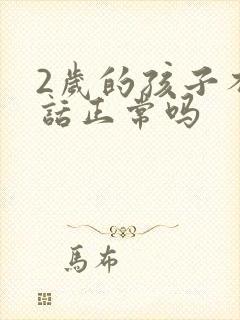 2歲的孩子
話正常吗
馬布